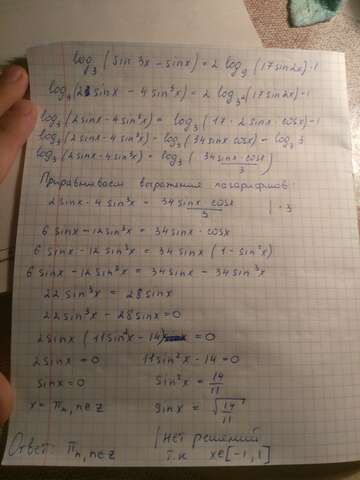 log₃(sin 3x - sinx) = 2 log₉(17sin2x) - 1
log₃(2sinx - 4sin³x) = 2 log₃²(17sin2x) - 1
log₃(2sinx - 4sin³x) = log₃(17 · 2sinx · cosx) - 1
log₃(2sinx - 4sin³x) = log₃(34sinx cosx) - log₃3
log₃(2sinx - 4sin³x) = log₃(34sinx·cosx/3)
Приравниваем выражения логарифмов:
2sinx - 4sin³x = 34sinx cosx/3 | · 3
6 sinx - 12sin³x = 34sinx · cosx
6 sinx - 12sin³x = 34sinx (1 - sin²x)
6 sinx - 12sin³x = 34sinx - 34sin³x
22sin³x = 28sinx
22sin³x - 28sinx = 0
2sinx (11sin²x - 14) = 0
2sinx = 0 11sin²x - 14 = 0
sinx = 0 sin²x = 14/11
x = πn, n∈z sinx = √14/11
Ответ: πn, n∈z | нет решений
т.к x∈[-1,1]